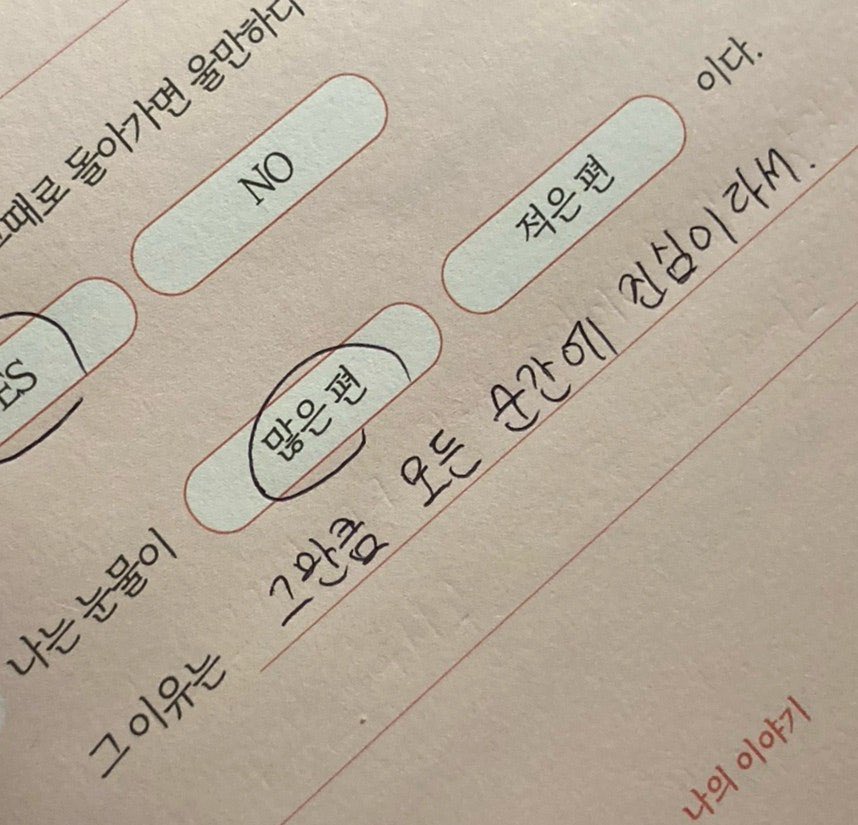 때로 돌아가면 울만하다
ES NO
나는 눈물이 많은 편 적은 편 이다.
그 이유는 그만큼 모든 순간에 진심이라서.
나의 이야기